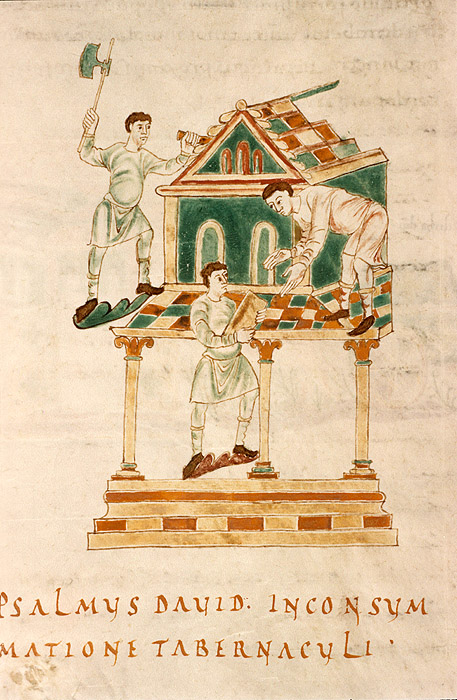 PSALMUS DAVID. IN CONSUM
MATIONE TABERNACULI.